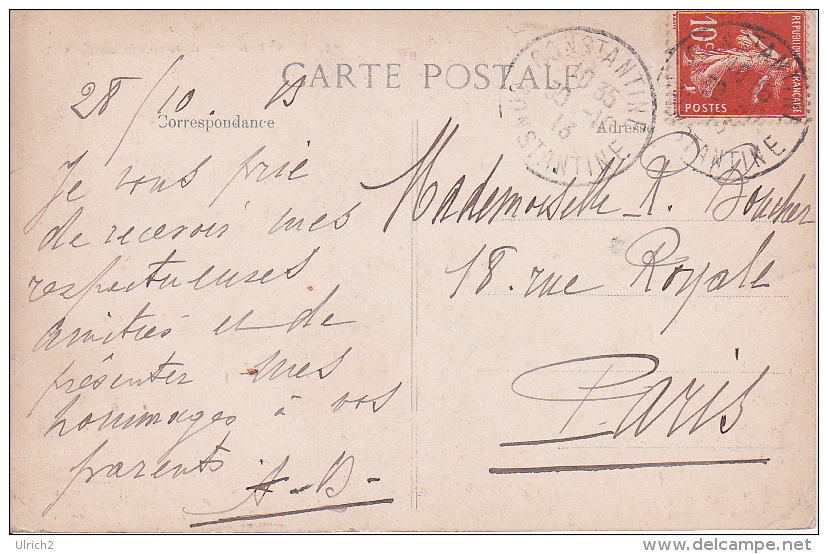 CARTE POSTALE
Correspondance
Adresse
28/10
Je vous prie
de recevoir mes
respectueuses
amitiés et de
présenter mes
hommages à vos
parents
A-B-
Mademoiselle R. Boucher
18. rue Royale
Paris
CONSTANTINE
10 35
30 -10
13
CONSTANTINE
10c
REPUBLIQUE FRANÇAISE
POSTES
CONSTANTINE
Ulrich2
http://www.delcampe.net